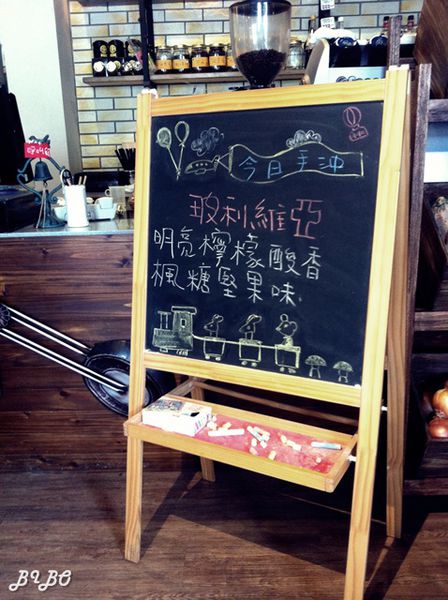 今日手沖
玻利維亞
明亮檸檬酸香
楓糖堅果味
BIBO